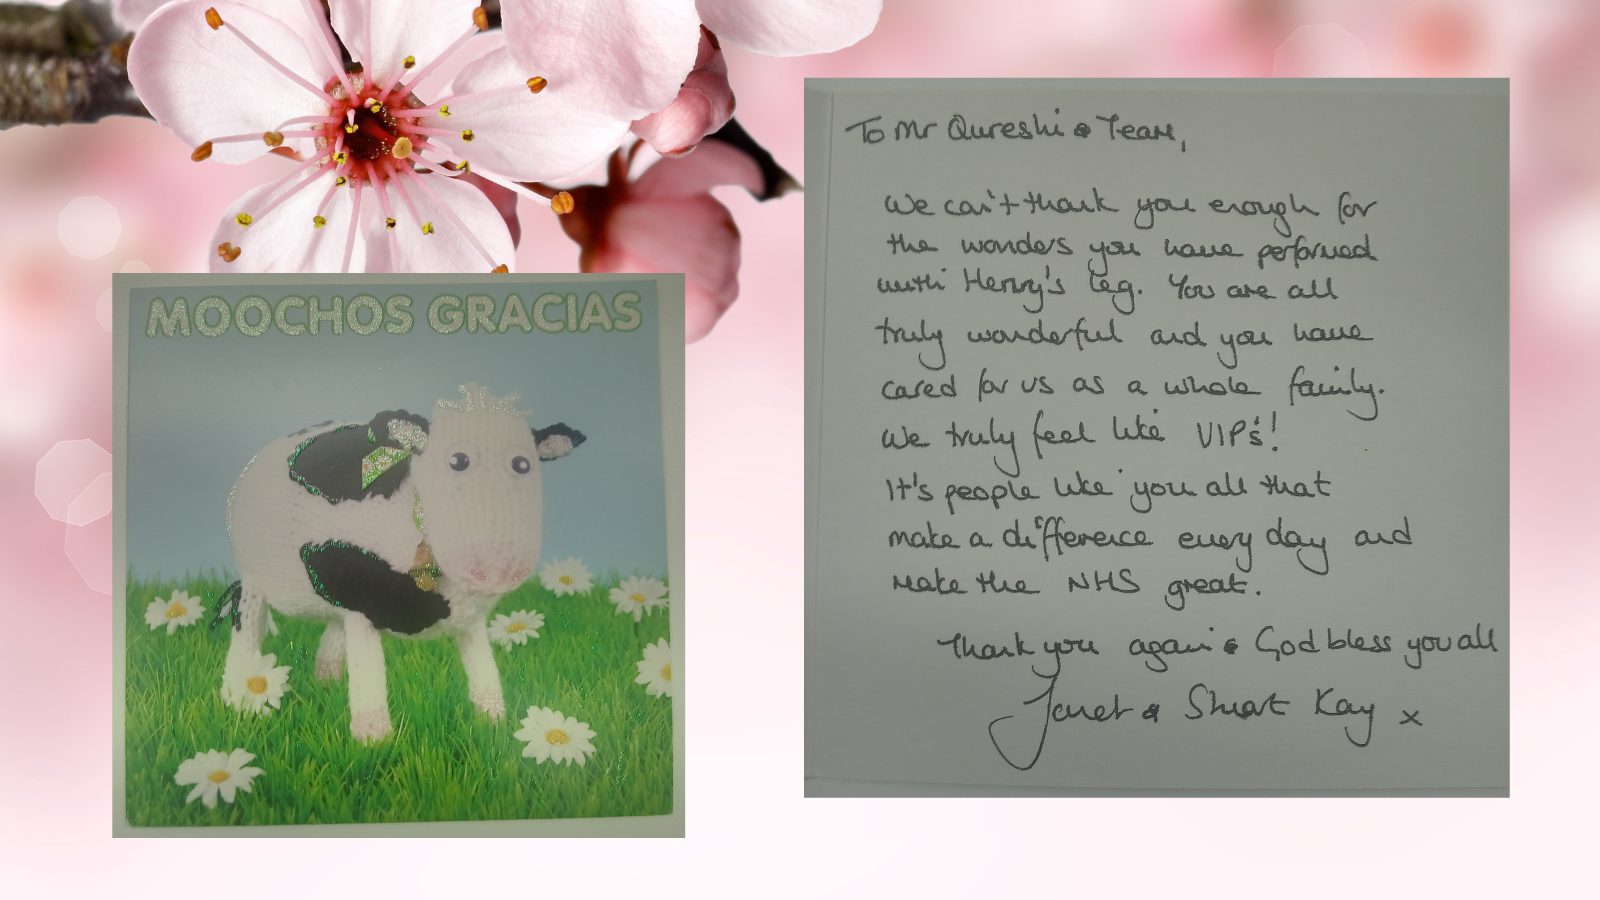 MOOCHOS GRACIAS
To Mr Qureshi & Team,
We can't thank you enough for
the wonders you have performed
with Henry's leg. You are all
truly wonderful and you have
cared for us as a whole family.
We truly feel like VIP's!
It's people like you all that
make a difference every day and
make the NHS great.
Thank you again & God bless you all
Janet & Stuart Kay x